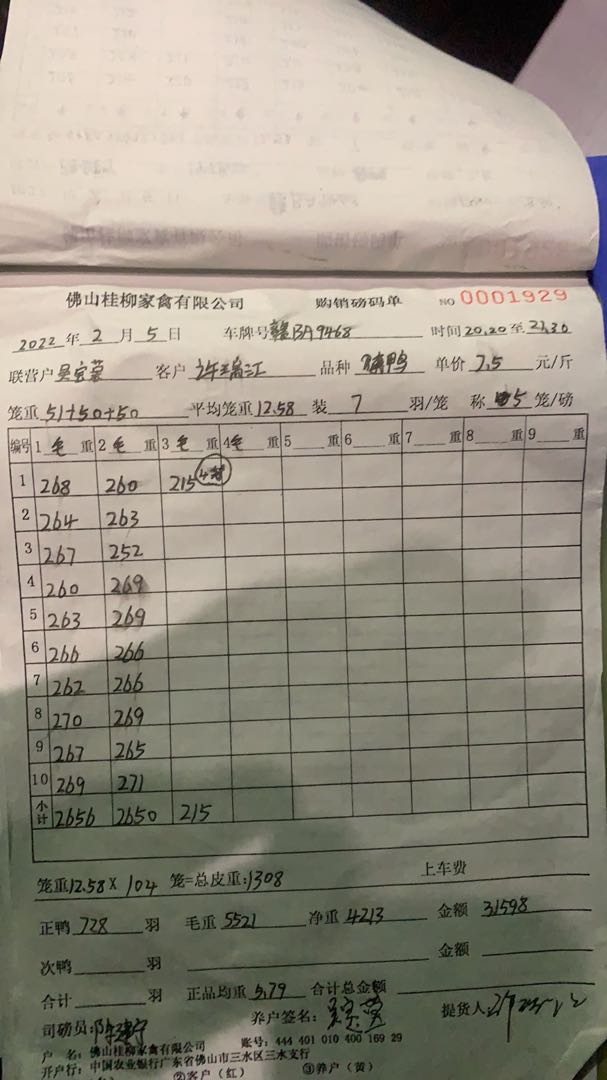 佛山桂柳家禽有限公司 购销磅码单 NO 0001929
2022 年 2 月 5 日 车牌号 赣BA9468 时间 20.20 至 21.30
联营户 吴宝荣 客户 许瑞江 品种 鸭 单价 7.5 元/斤
笼重 51+50+50 平均笼重 12.58 装 7 羽/笼 称 5 笼/磅
编号 1 毛 重 2 毛 重 3 毛 重 4 毛 重 5 重 6 重 7 重 8 重 9 重
1 268 260 215 4笼
2 264 263
3 267 252
4 260 269
5 263 269
6 266 266
7 262 266
8 270 269
9 267 265
10 269 271
小计 2656 2650 215
笼重 12.58 × 104 笼=总皮重: 1308 上车费
正鸭 728 羽 毛重 5521 净重 4213 金额 31598
次鸭 羽 金额
合计 羽 正品均重 5.79 合计总金额
司磅员: 养户签名: 吴宝荣 提货人
户 名: 佛山桂柳家禽有限公司 账号: 444 401 010 400 169 29
开户行: 中国农业银行广东省佛山市三水区三水支行
②客户(红) ③养户(黄)